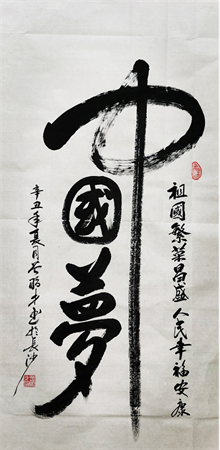 祖國繁榮昌盛 人民幸福安康
中國夢
辛丑年夏月 於長沙